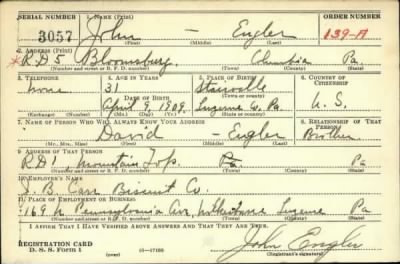 SERIAL NUMBER 1. NAME (Print) ORDER NUMBER
3057 John - Engler 139-A
(First) (Middle) (Last)
2. ADDRESS (Print)
* R.D 5 Bloomsburg. Columbia Pa.
(Number and street or R. F. D. number) (Town) (County) (State)
3. TELEPHONE 4. AGE IN YEARS 5. PLACE OF BIRTH 6. COUNTRY OF CITIZENSHIP
none 31
DATE OF BIRTH
April 9, 1909. Luzerne Co. Pa. U. S.
(Exchange) (Number) (Mo.) (Day) (Yr.) (Town) (State or country)
7. NAME OF PERSON WHO WILL ALWAYS KNOW YOUR ADDRESS 8. RELATIONSHIP OF THAT PERSON
David - Engler Brother
(Mr., Mrs., Miss) (First) (Middle) (Last)
9. ADDRESS OF THAT PERSON
R.D 1 Mountain Top. Pa Pa
(Number and street or R. F. D. number) (Town) (County) (State)
10. EMPLOYER'S NAME
J. B. Carr Biscuit Co.
11. PLACE OF EMPLOYMENT OR BUSINESS
169 N Pennsylvania Av, Wilkesbarre Luzerne Pa
(Number and street or R. F. D. number) (Town) (County) (State)
I AFFIRM THAT I HAVE VERIFIED ABOVE ANSWERS AND THAT THEY ARE TRUE.
REGISTRATION CARD
D. S. S. Form 1 (over) John Engler
(Registrant's signature)